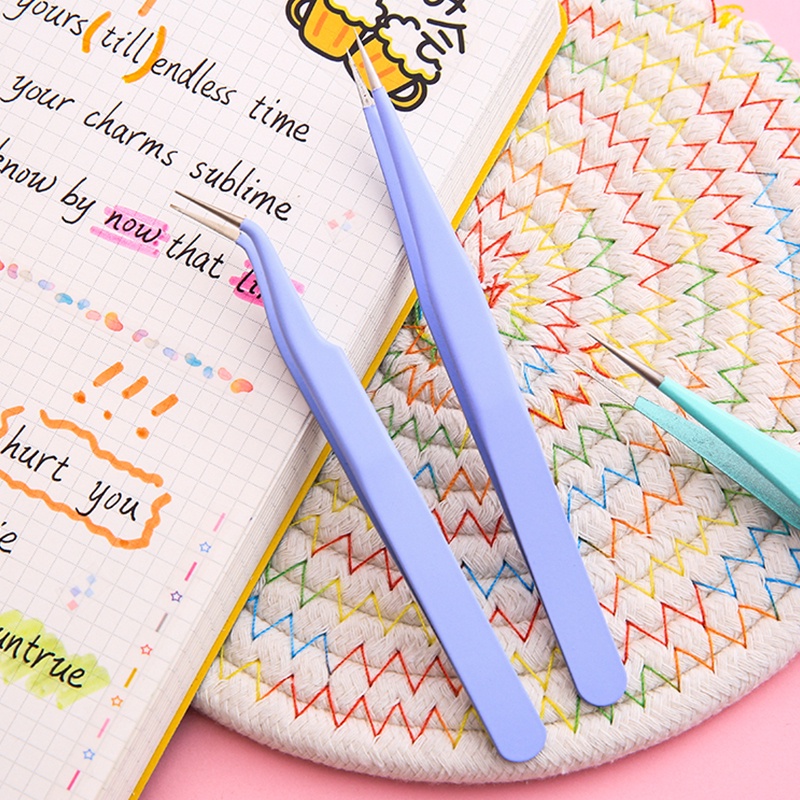 yours(till)endless time
your charms sublime
know by now that
hurt you
untrue